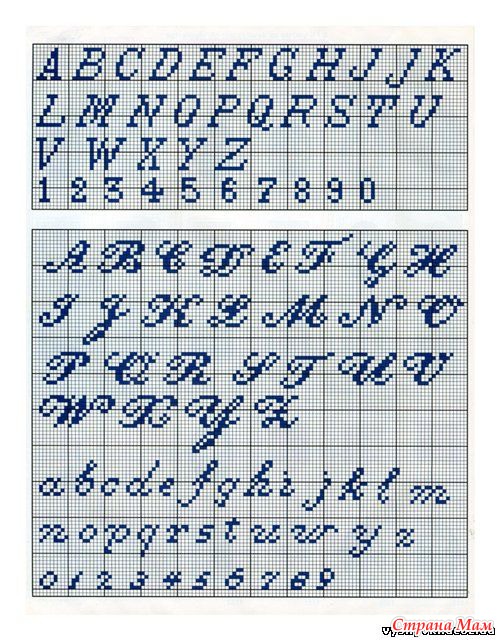 A B C D E F G H I J K
L M N O P Q R S T U
V W X Y Z
1 2 3 4 5 6 7 8 9 0
A B C D E F G H
I J K L M N O
P Q R S T U V
W X Y Z
a b c d e f g h i j k l m
n o p q r s t u w y z
0 1 2 3 4 5 6 7 8 9
Страна Мам